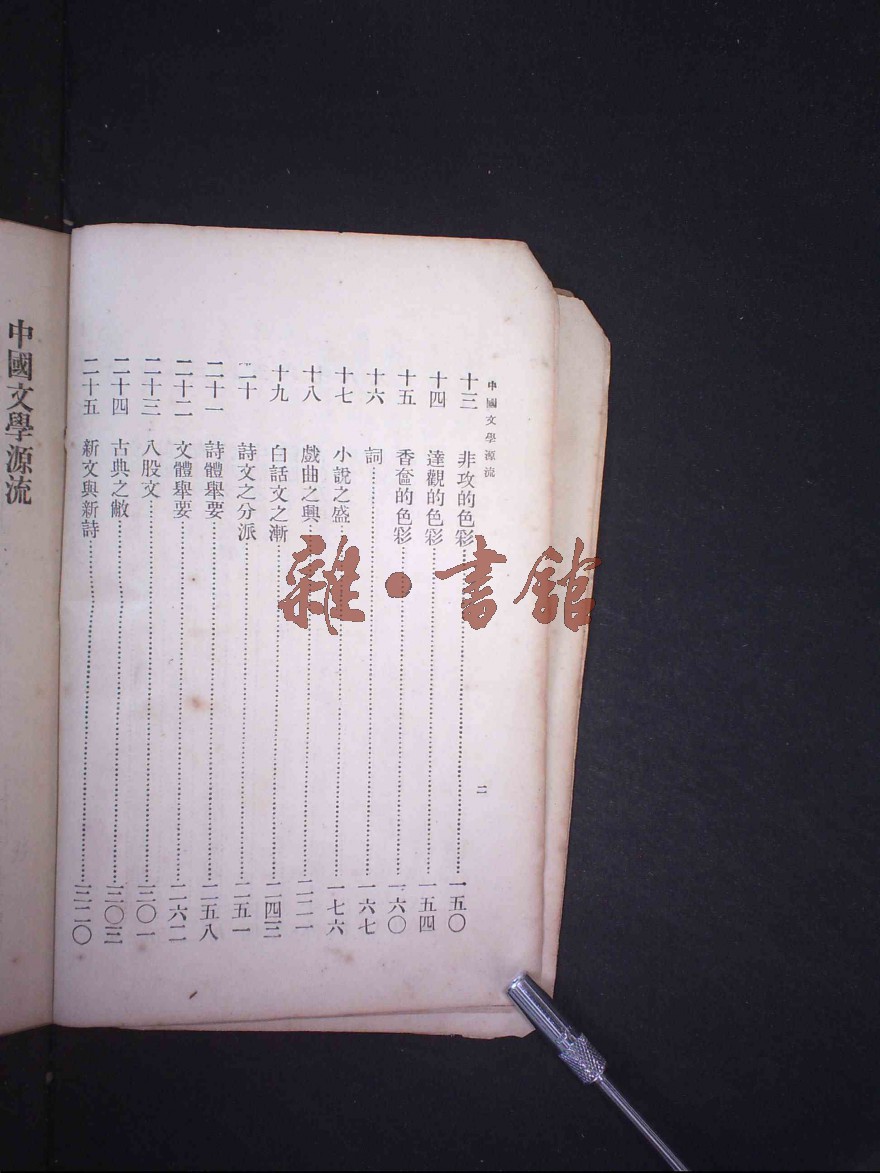 中國文學源流
二
十三 非攻的色彩…………一五〇
十四 達觀的色彩…………一五四
十五 香奩的色彩…………一六〇
十六 詞…………一六七
十七 小說之盛…………一七六
十八 戲曲之興…………二二一
十九 白話文之漸…………二四三
二十 詩文之分派…………二五一
二十一 詩體舉要…………二五八
二十二 文體舉要…………二六二
二十三 八股文…………三〇一
二十四 古典之敝…………三〇三
二十五 新文與新詩…………三二〇
中國文學源流
雜·書館